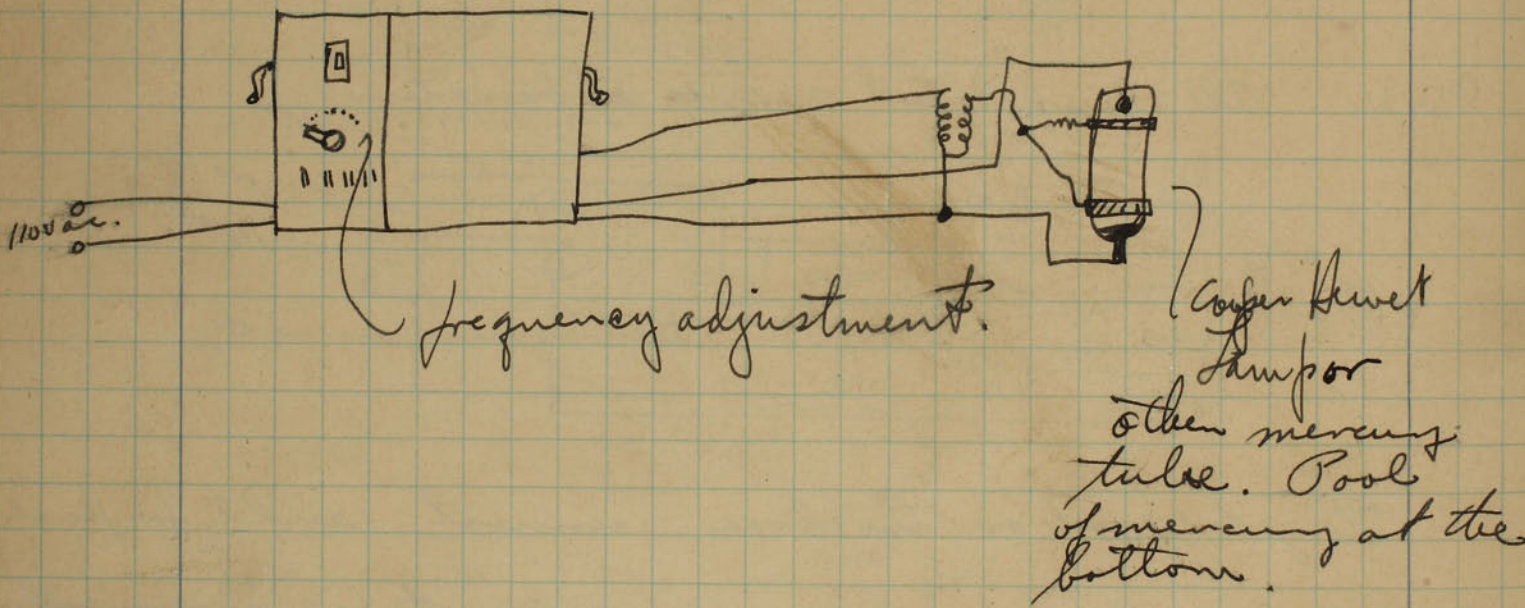 110 v ac.
frequency adjustment.
Cooper Hewet
Lamp or
other mercury
tube. Pool
of mercury at the
bottom.